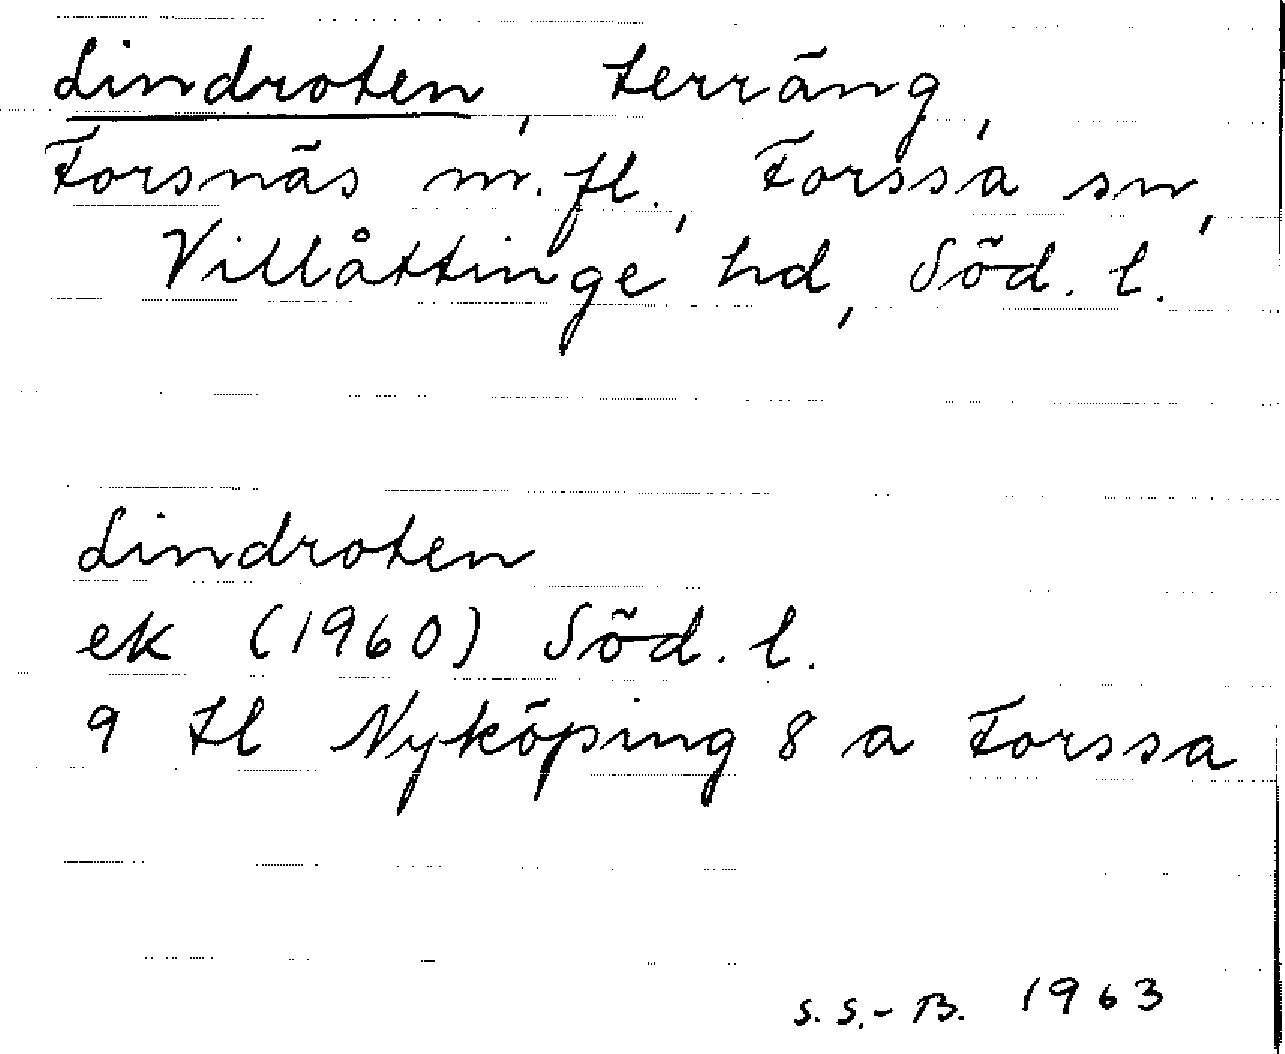 Lindroten, terräng,
Forsnäs m. fl., Forssa sn,
Villåttinge hd, Söd. l.
Lindroten
ek (1960) Söd. l.
9 H Nyköping 8 a Forssa
S. S.-B. 1963